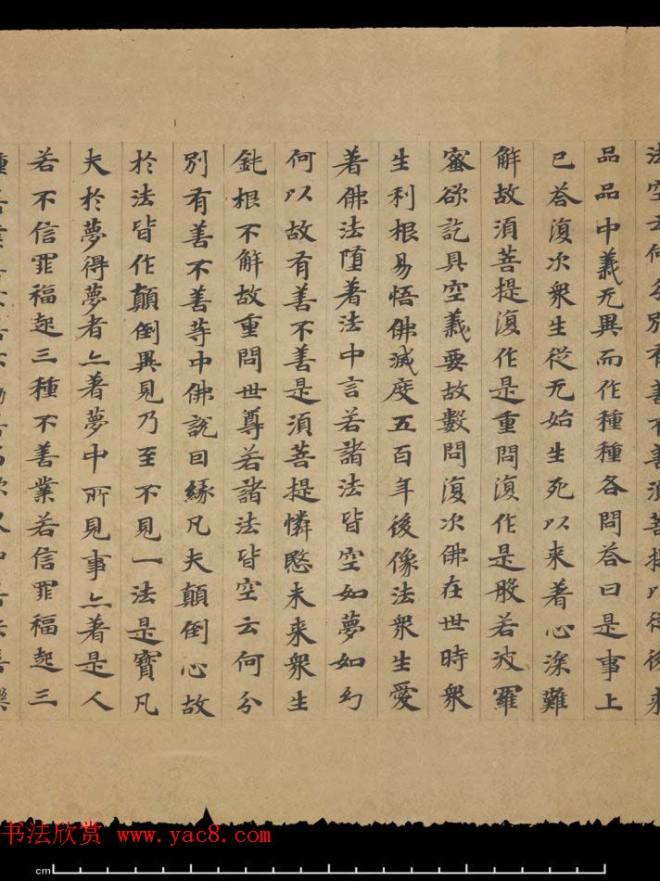 法空云何分別有善不善須菩提以從後來
品品中義无異而作種種各問荅曰是事上
已荅復次衆生從无始生死以来著心深難
解故須菩提復作是重問復作是般若波羅
蜜欲訖具空義要故數問復次佛在世時衆
生利根易悟佛滅度五百年後像法衆生愛
著佛法墮著法中言若諸法皆空如夢如幻
何以故有善不善是須菩提憐愍未来衆生
鈍根不解故重問世尊若諸法皆空云何分
別有善不善䓁中佛說曰緣凡夫顛倒心故
於法皆作顛倒異見乃至不見一法是實凡
夫於夢得夢者亦著夢中所見事亦著是人
若不信罪福起三種不善業若信罪福起三
種善業
书法欣赏 www.yac8.com
cm